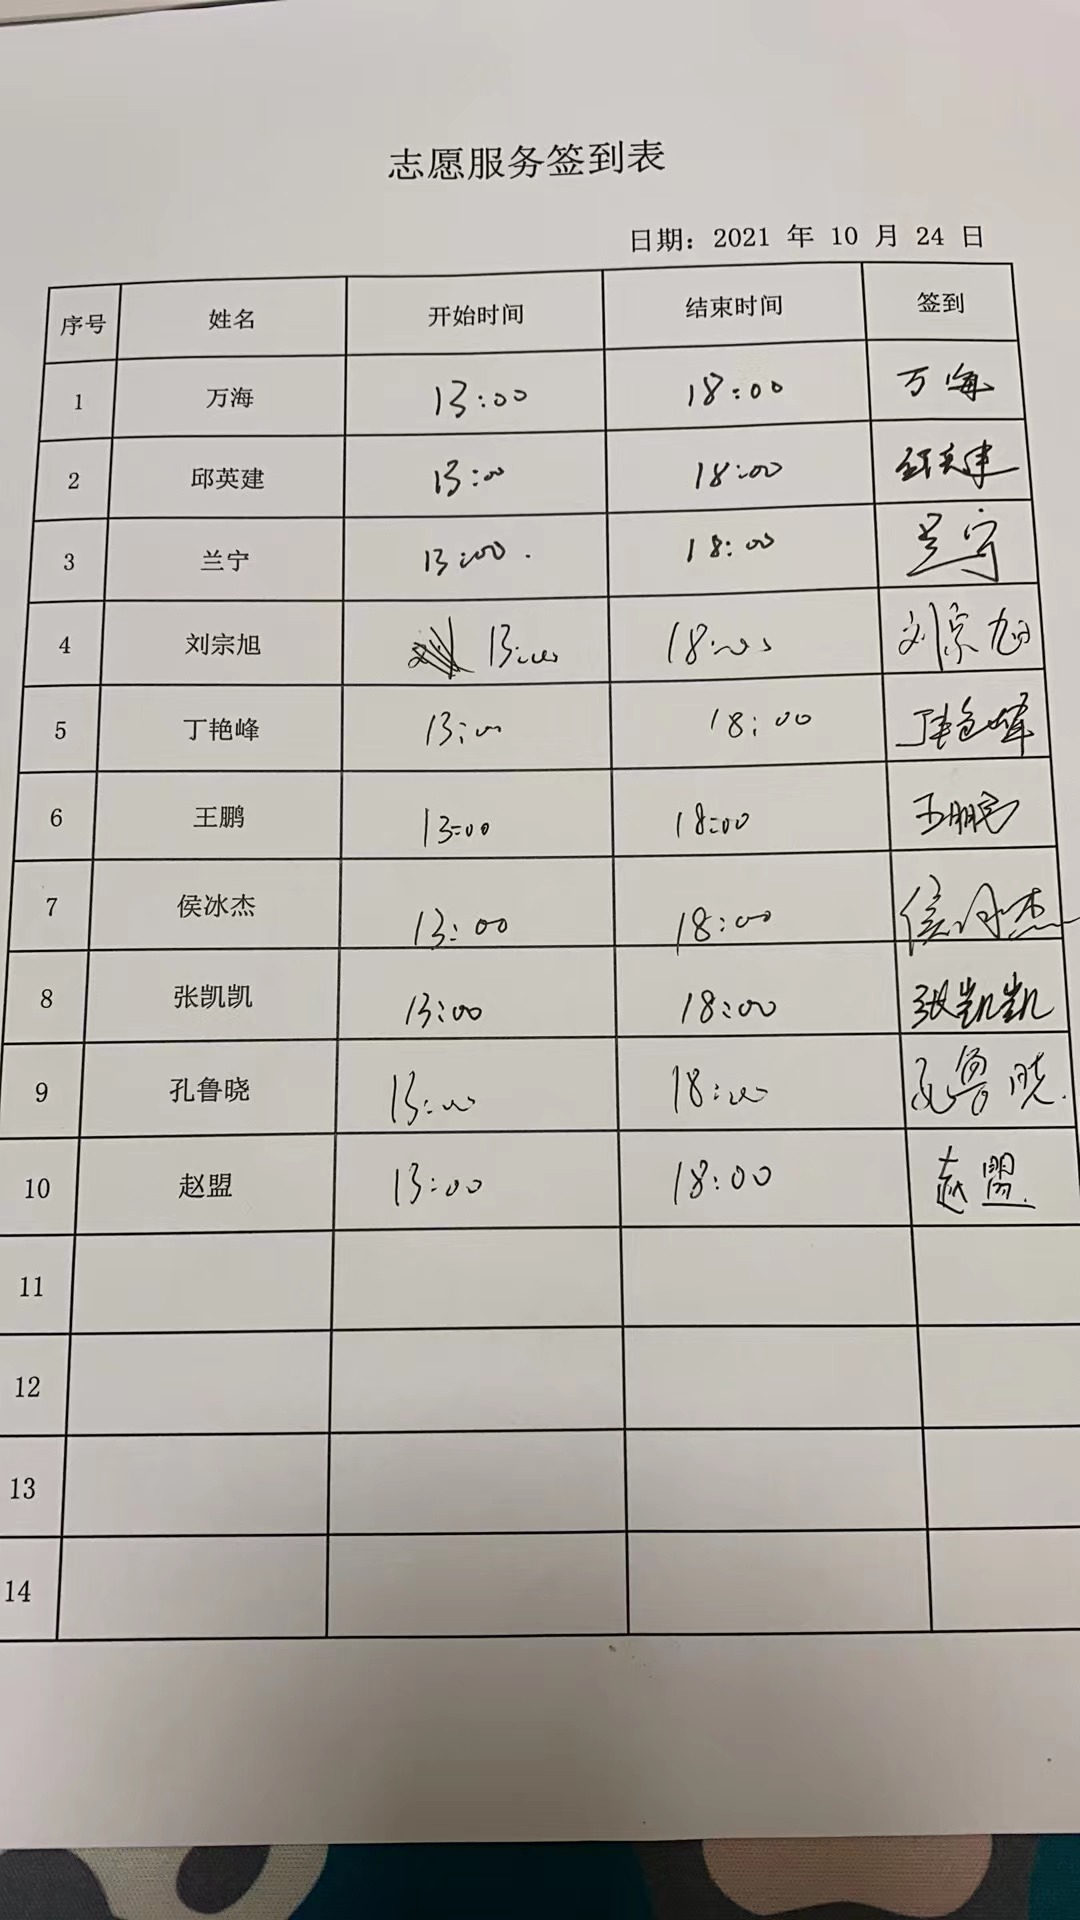 志愿服务签到表
日期：2021 年 10 月 24 日
序号 姓名 开始时间 结束时间 签到
1 万海 13:00 18:00 万海
2 邱英建 13:00 18:00 邱英建
3 兰宁 13:00. 18:00 兰宁
4 刘宗旭 13:00 18:00 刘宗旭
5 丁艳峰 13:00 18:00 丁艳峰
6 王鹏 13:00 18:00 王鹏
7 侯冰杰 13:00 18:00 侯冰杰
8 张凯凯 13:00 18:00 张凯凯
9 孔鲁晓 13:00 18:00 孔鲁晓.
10 赵盟 13:00 18:00 赵盟.
11
12
13
14